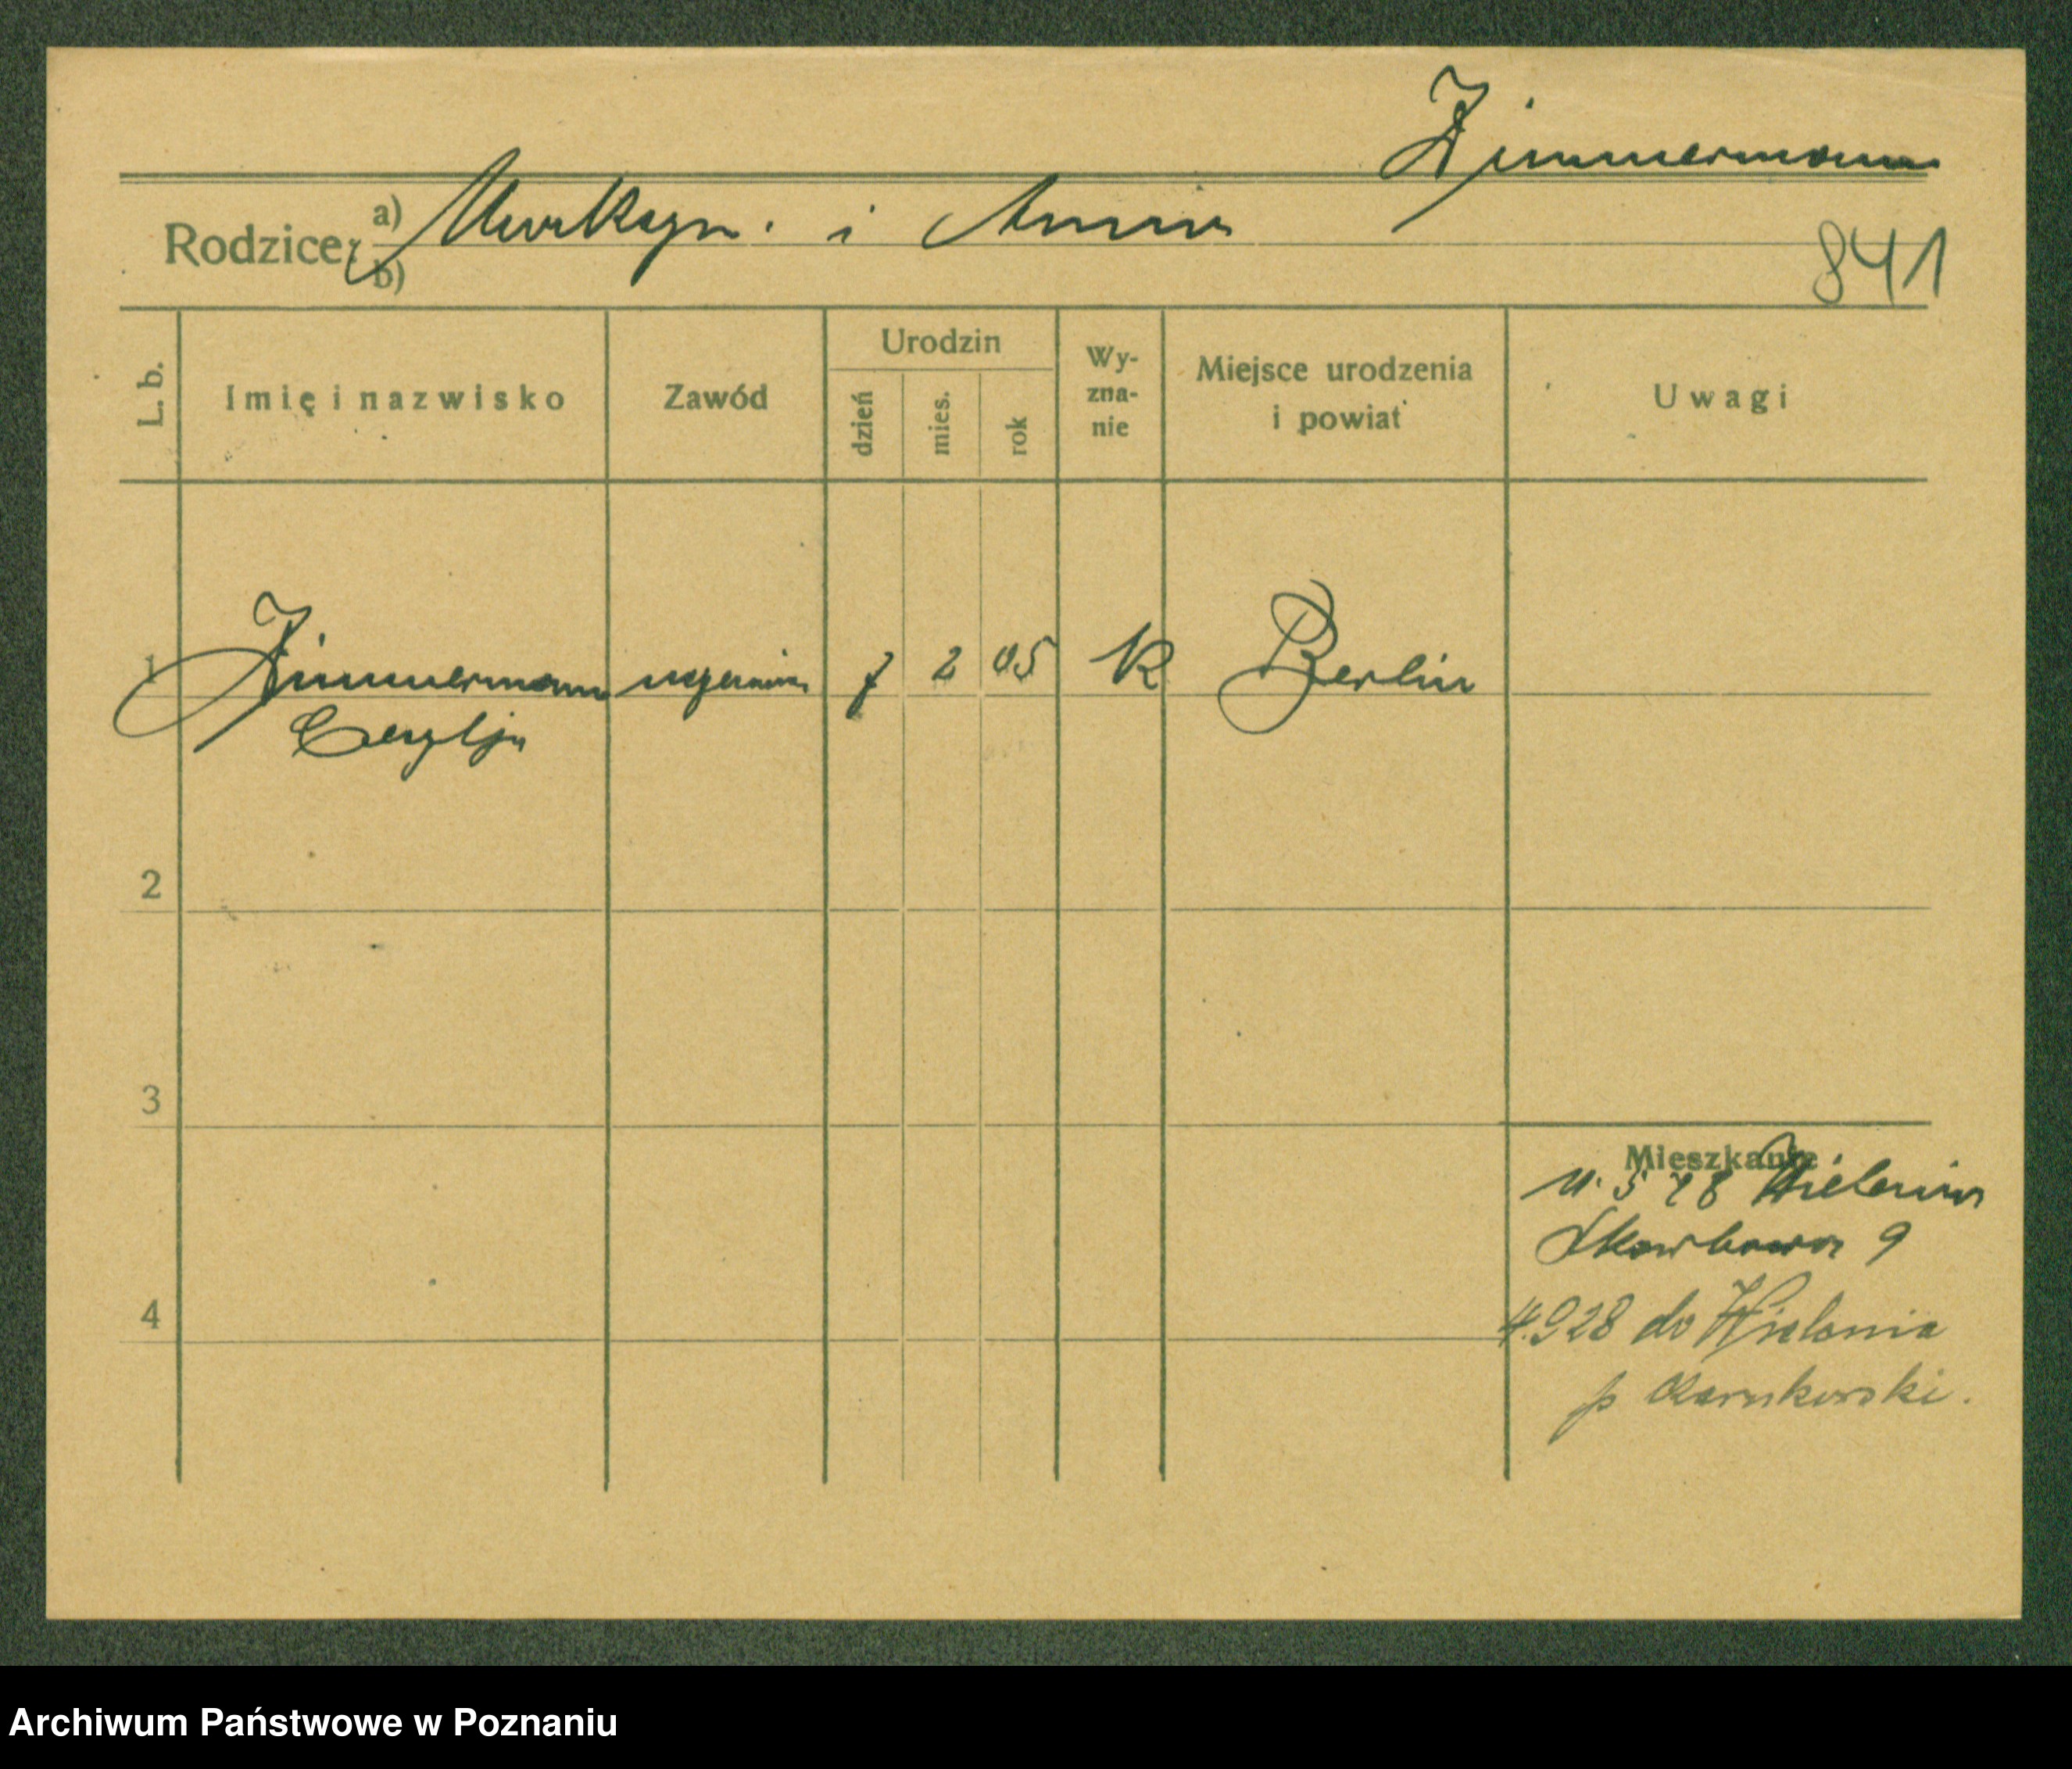 Zimmermann
Rodzice: a) Maksym. i Anna
b)
841
L. b. Imię i nazwisko Zawód Urodzin dzień mies. rok Wy-zna-nie Miejsce urodzenia i powiat Uwagi
1 Zimmermann 7 2 05 K Berlin
Cecylja
2
3
Mieszkanie
5 28 Wielenia
Skarbowa 9
4
4.9 28 do Wielenia
p Czarnkowski.
Archiwum Państwowe w Poznaniu